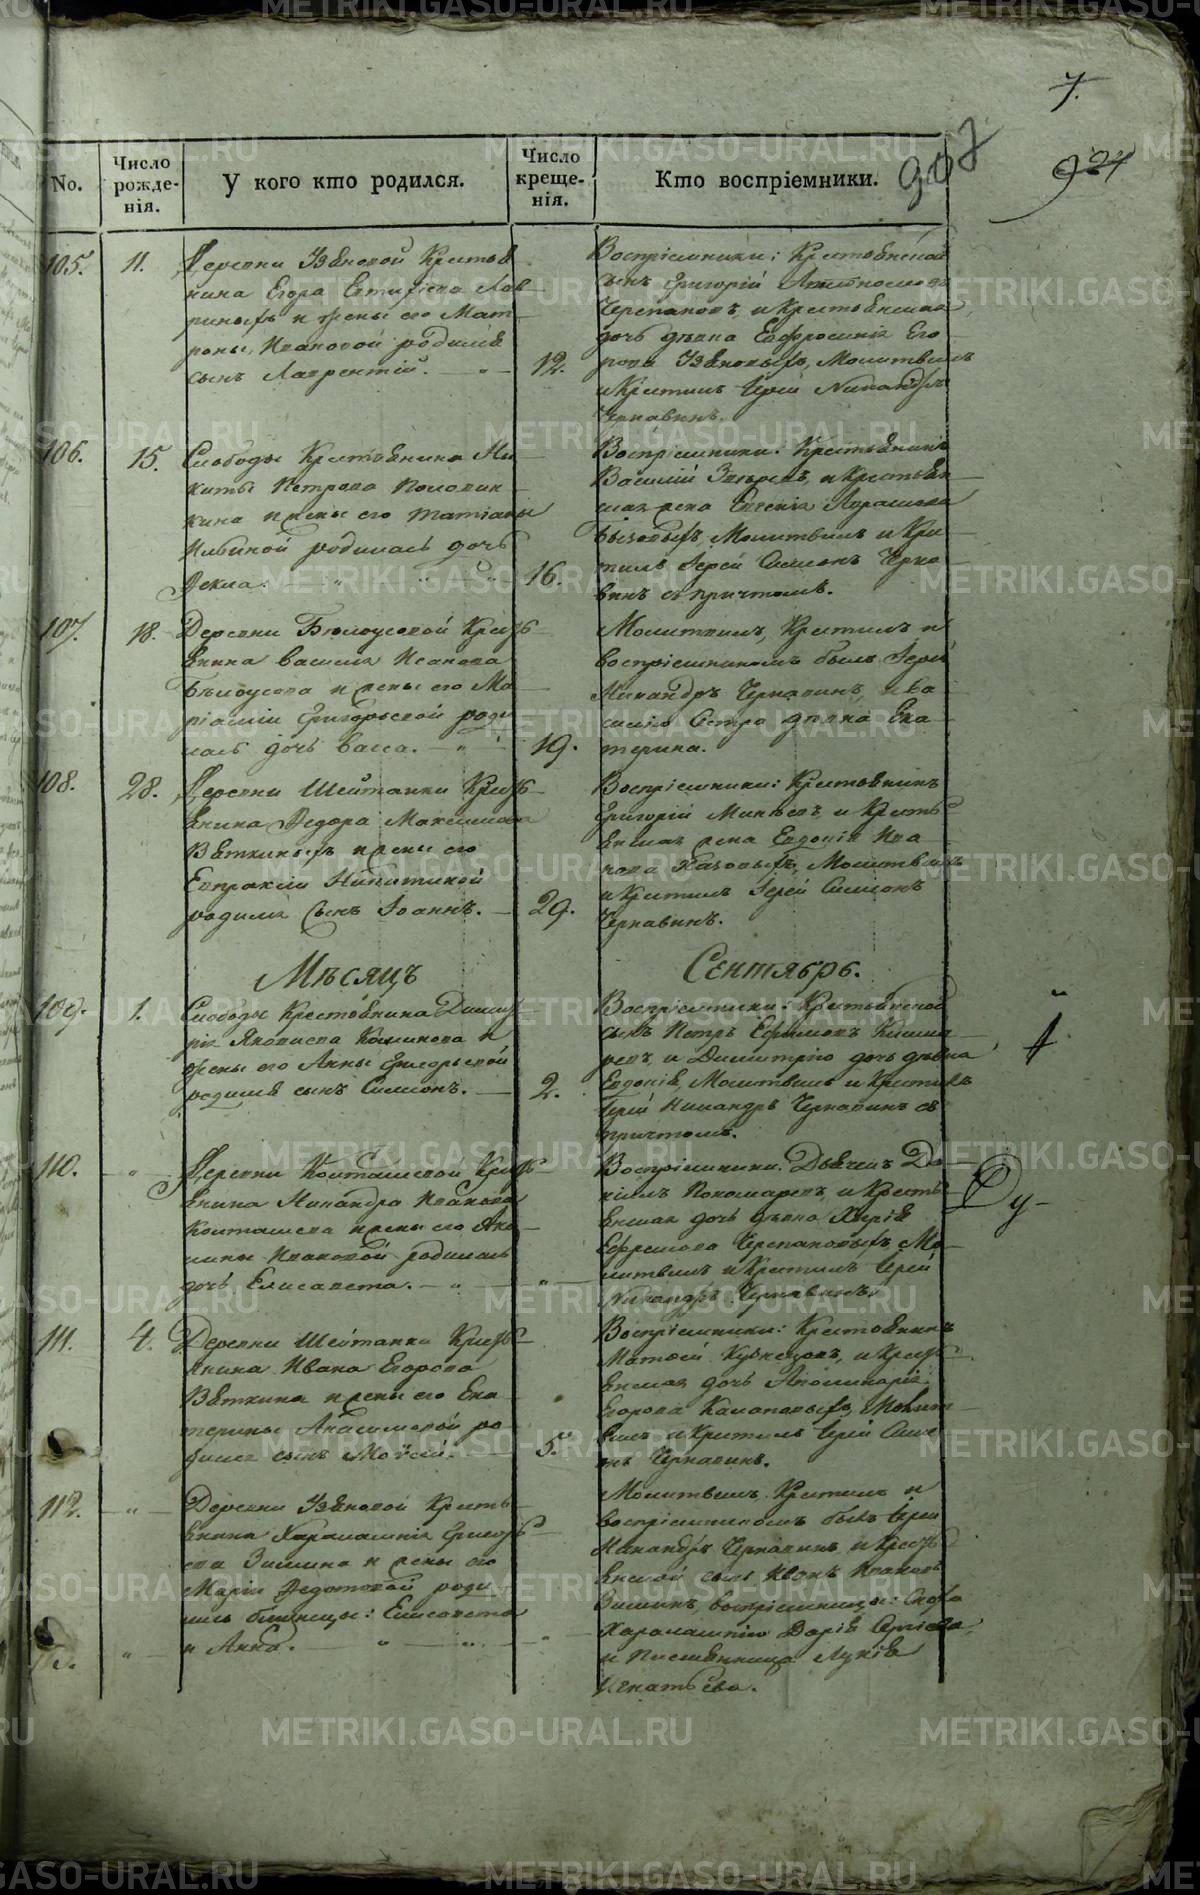 7.
907
924
No.
Число рожде-нія.
У кого кто родился.
Число креще-нія.
Кто воспріемники.
105.
11.
Деревни Узяновой Крестья
нина Егора Евтифіева Лав
риныхъ и жены его Мат
роны Ивановой родился
сынъ Лаврентій.
12.
Воспріемники: Крестьянской
сынъ Григорій
Черепановъ, и крестьянская
дочь дѣвка Евфросинія Его
рова Узяновыхъ, Молитвилъ
и Крестилъ Іерей Никандръ
Чернавинъ.
106.
15.
Слободы Крестьянина Ни
киты Петрова Половин
кина и жены его Татіаны
Ильиной родилась дочь
Fекла.
16.
Воспріемники: Крестьянинъ
Василій и Крестьян
ская жена Евгенія Аврамова
Молитвилъ и Кре
тилъ Іерей Симеонъ Черна
винъ съ причтомъ.
107.
18.
Деревни Бѣлоусовой Кресть
янина Василья Иванова
Бѣлоусова и жены его Ма
ріамніи Григорьевой роди
лась дочь Васса.
19.
Молитвилъ, Крестилъ и
воспріемникомъ былъ Іерей
Никандръ Чернавинъ, и Ва
силію Сестра дѣвка Ека
терина.
108.
28.
Деревни Шейтанки Кресть
янина Fедора Максимова
Вяткиныхъ и жены его
Евпраксіи Никитиной
родился сынъ Іоаннъ.
29.
Воспріемники: Крестьянинъ
Григорій Минѣевъ, и Кресть
янская жена Евдокія Ива
нова Молитвилъ
и Крестилъ Іерей Симеонъ
Чернавинъ.
Мѣсяцъ
Сентябрь.
109.
1.
Слободы Крестьянина Димит
рія Яковлева Калинова и
жены его Анны Григорьевой
родился сынъ Симеонъ.
2.
Воспріемники: Крестьянской
сынъ Петръ Ефимовъ
и Димитрію дочь дѣвка
Евдокія, Молитвилъ и Крестилъ
Іерей Никандръ Чернавинъ съ
причтомъ.
110.
Деревни Колташевой Кресть
янина Никандра Иванова
Колташева и жены его Аку
лины Ивановой родилась
дочь Елисавета.
Воспріемники: Дьячекъ Да
ніилъ Пономаревъ, и Кресть
янская дочь дѣвка Марія
Ефремова Черепановыхъ, Мо
литвилъ и Крестилъ Іерей
Никандръ Чернавинъ.
111.
4.
Деревни Шейтанки Кресть
янина Ивана Егорова
Вяткина и жены его Ека
терины Анисимовой ро
дился сынъ Моисей.
5.
Воспріемники: Крестьянинъ
Матfей Кузнецовъ, и Кресть
янская дочь Аполинарія
Егорова Молит
вилъ и Крестилъ Іерей Симе
нъ Чернавинъ.
112.
Деревни Узяновой Кресть
янина Харалампія Григорь
ева Зимина и жены его
Маріи Fедотовой роди
лись близнецы: Елисавета
и Анна.
Молитвилъ Крестилъ и
воспріемникомъ былъ Іерей
Никандръ Чернавинъ и Кресть
янской сынъ Иванъ Ивановъ
Зиминъ, воспріемницы: Сноха
Харалампію Дарія Сергѣева
и Лукія
Игнатьева.